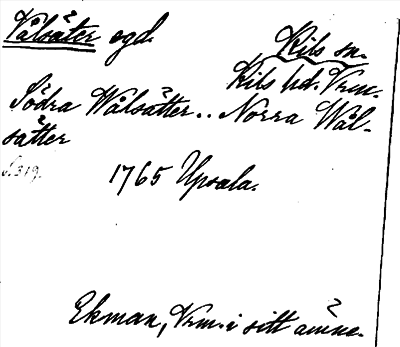 Vålsäter egd.
Kils sn.
Kils hd. Vrm.
Södra Wålsätter.. Norra Wål-
sätter
s. 319.
1765 Upsala.
Ekman, Vrm. i sitt ämne.